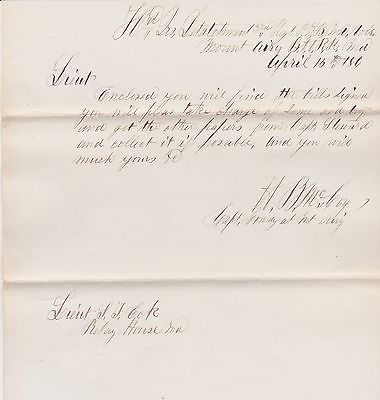 Hd Qrs Detatchment
Mount Airy Md
April 15th 186
Lieut
Enclosed you will find the bills signd
you will pleas take charge of Same and try
and get the other papers from Capt Steward
and collect it if posable, and you will
much yours &c
H. B. McCoy
Capt Comdg at Mt Airy
Lieut Cook
Relay House Md